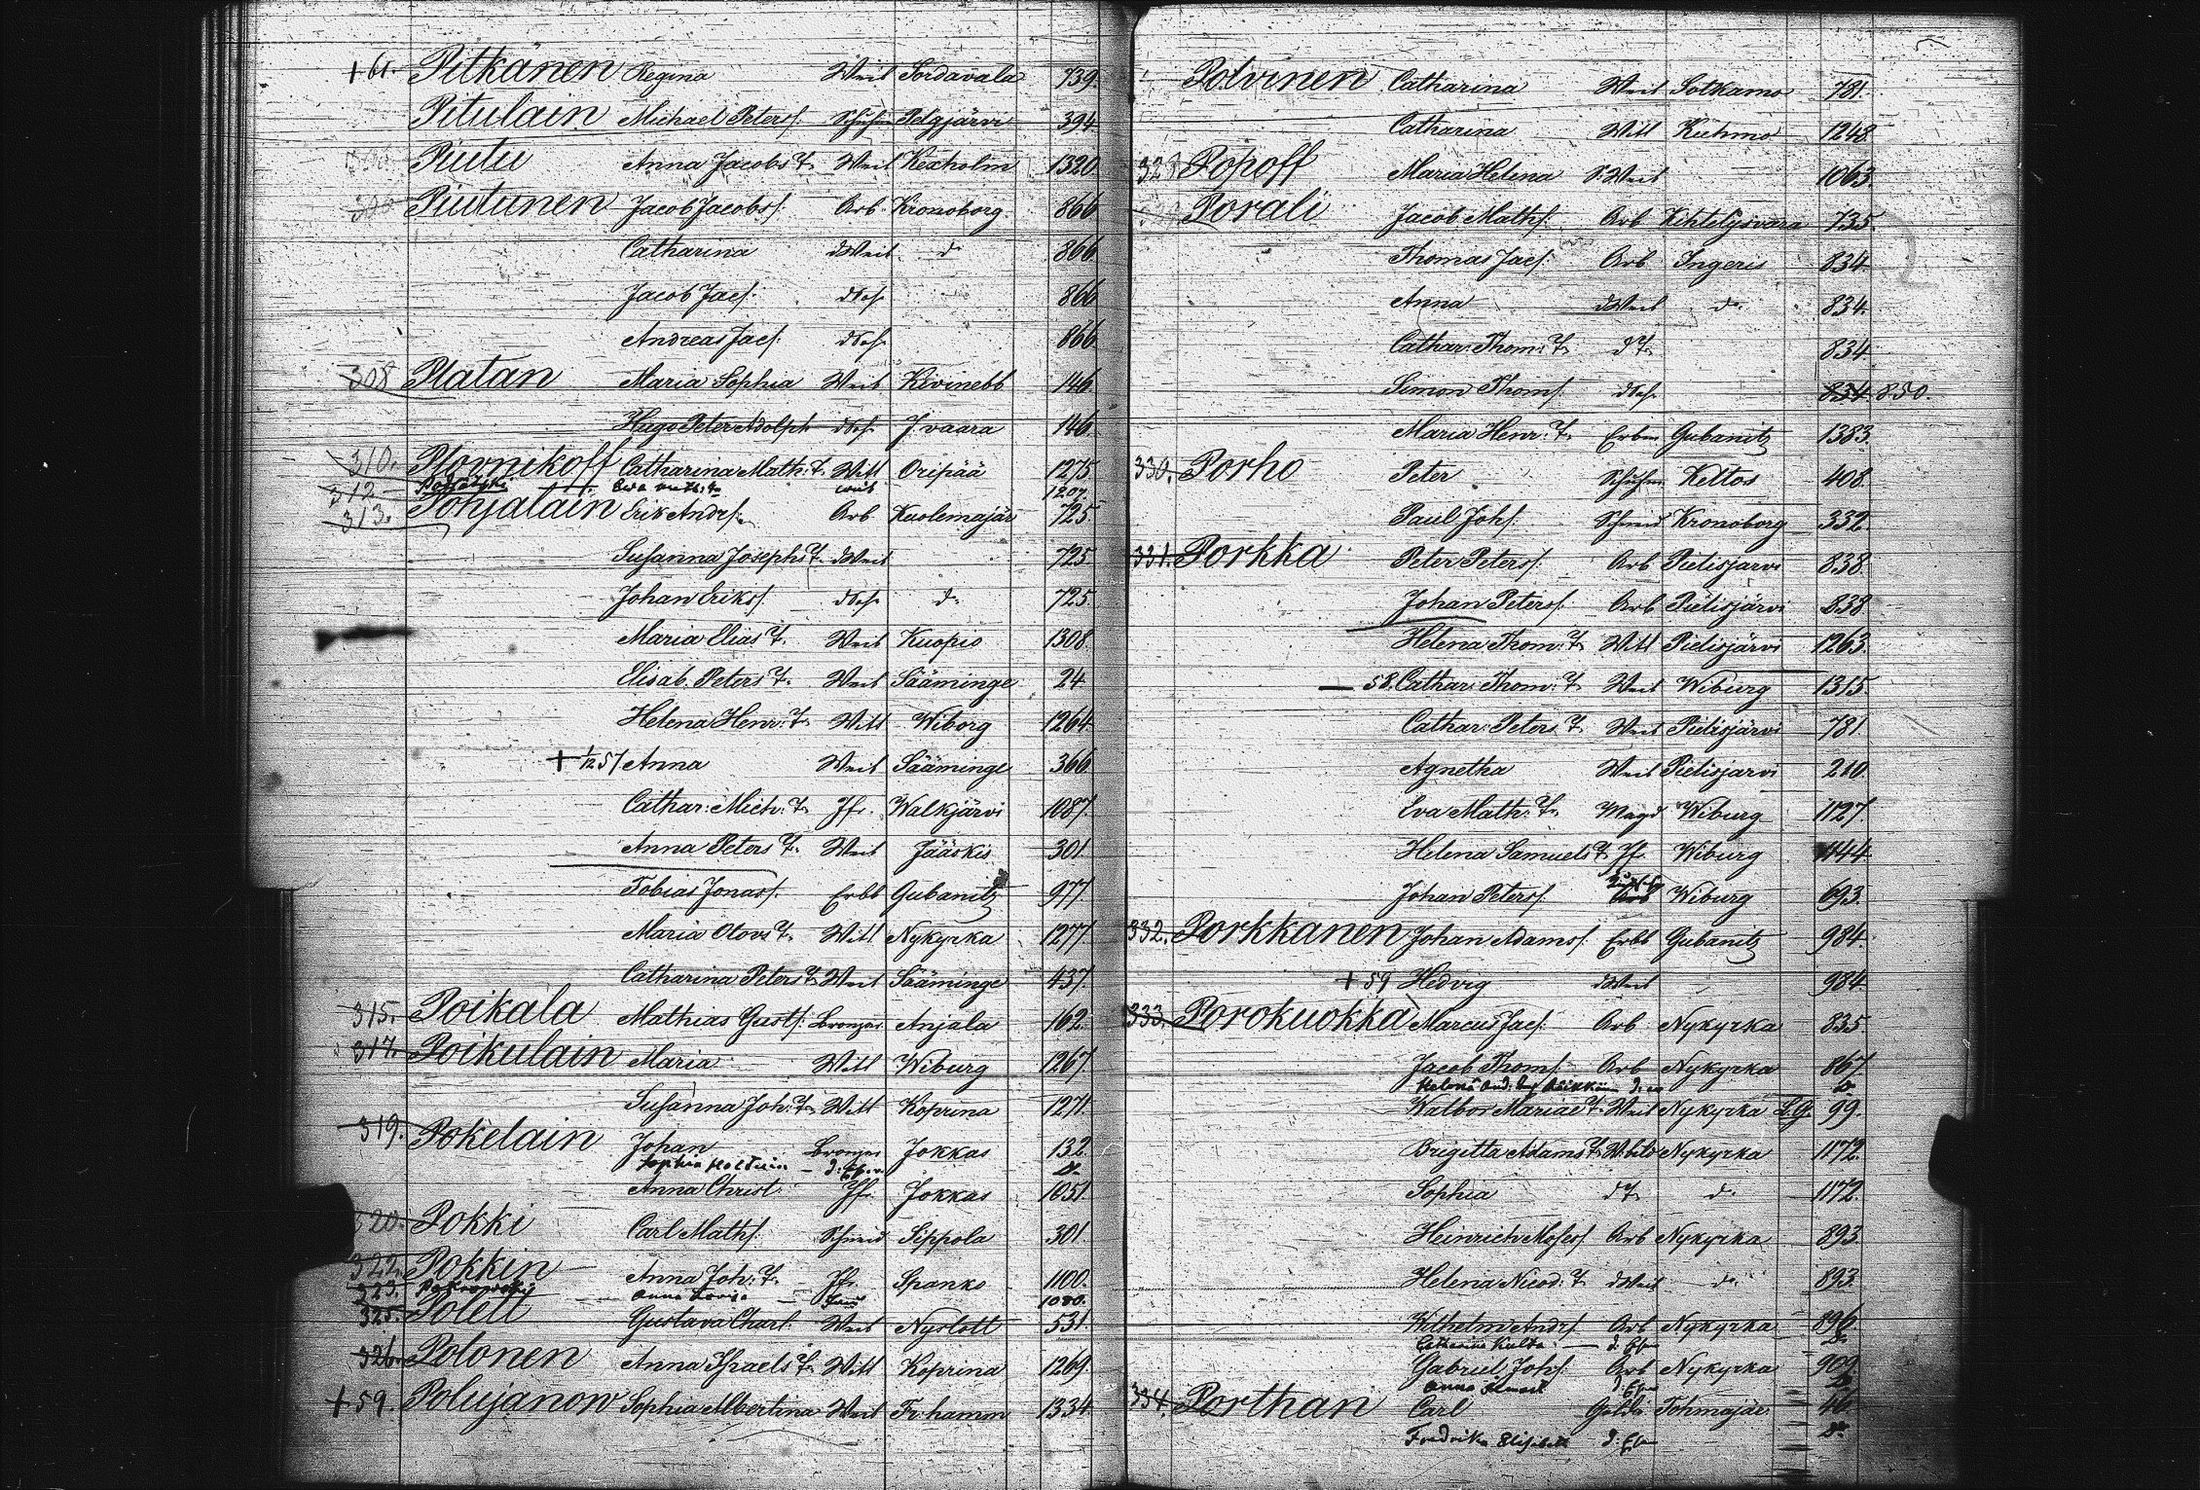 + 61. Pitkänen Regina Weib Sordavala 739.
Pitulain Michael Peters f. Schuhm Pelgjärvi 394
Piutu Anna Jacobs T. Weib Kexholm 1320.
Piutunen Jacob Jacobs f. Arb Kronoborg 866
Catharina d Weib d 866
Jacob Jac f. d Sof. 866
Andreas Jac f. d Sof. 866.
308 Platan Maria Sophia Weib Kivinebb 146
Hugo Peter Adolph d Sof. J. vaara 146
310. Plovnikoff Catharina Math: T. Witt Oripää 1275.
312 weib 1207.
313. Pohjalain Erik Andr f. Arb Kuolemajär 725.
Susanna Josephs T. d Weib 725
Johan Eriks f. d Sof. d. 725
Maria Elias T. Weib Kuopio 1308.
Elisab. Peters T. Weib Sääminge 24
Helena Henr: T. Witt Wiborg 1264
+ 1/12 57 Anna Weib Sääminge 366
Cathar: Mich: T. Jfr. Walkjärvi 1087.
Anna Peters T. Weib Jääskis 301
Tobias Jonas f. Erbb Gubanitz 977.
Maria Olovs T. Witt Nykyrka 1277
Catharina Peters T. Weib Sääminge 437.
315. Poikala Mathias Gust f. Bronzar Anjala 162.
317. Poikulain Maria Witt Wiburg 1267.
Susanna Joh: T. Witt Koprina 1271.
319. Pokelain Johan Bronzar Jokkas 132.
Sophia
Anna Christ. Jfr. Jokkas 1051.
320. Pokki Carl Math f. Schmid Sippola 301.
322. Pokkin Anna Joh: T. Jfr. Spanko 1100.
323. Anna Lovisa 1080.
325. Polett Gustava Charl. Weib Nyslott 531
326. Polonen Anna Israels T. Witt Koprina 1269
+ 59. Polujanow Sophia Albertina Weib Fr: hamm 1334
Polvinen Catharina Weib Sotkamo 781.
Catharina Witt Kuhmo 1248.
323 Popoff Maria Helena S. Weib 1063
Porali Jacob Math f. Arb Kihtelysvara 735.
Thomas Jac f. Arb Ingeris 834
Anna d Weib d. 834.
Cathar: Thom: T. d T. 834
Simon Thom f. d Sof. 834. 850.
Maria Henr: T. Erbm Gubanitz 1383.
330. Porho Peter Schuhm Keltos 408.
Paul Joh f. Schmid Kronoborg 332.
331. Porkka Peter Peters f. Arb Pielisjärvi 838
Johan Peters f. Arb Pielisjärvi 838.
Helena Thom: T. Witt Pielisjärvi 1263.
— 58. Cathar: Thom: T. Weib Wiburg 1315.
Cathar: Peters T. Weib Pielisjärvi 781.
Agnetha Weib Pielisjarvi 210.
Eva Math: T. Magd Wiburg 1127.
Helena Samuels T. Jf. Wiburg 1144
Johan Peters f. Arb Wiburg 693.
332. Porkkanen Johan Adams f. Erbb Gubanitz 984.
+ 59 Hedvig d Weib 984
333. Porokuokka Marcus Jac f. Arb Nykyrka 835.
Jacob Thom f. Arb Nykyrka 867.
Helena
Walbor Mariae T. Weib Nykyrka L.G. 99.
Brigitta Adams T. Nykyrka 1172.
Sophia d T. d. 1172.
Heinrich Moses f Arb Nykyrka 893.
Helena Nicod: T. d Weib d. 893.
Wilhelm Andr f. Arb Nykyrka 896
Gabriel Joh f. Arb Nykyrka 909.
Anna
334. Porthan Carl Tohmajär 46
Fredrika Elisabeth